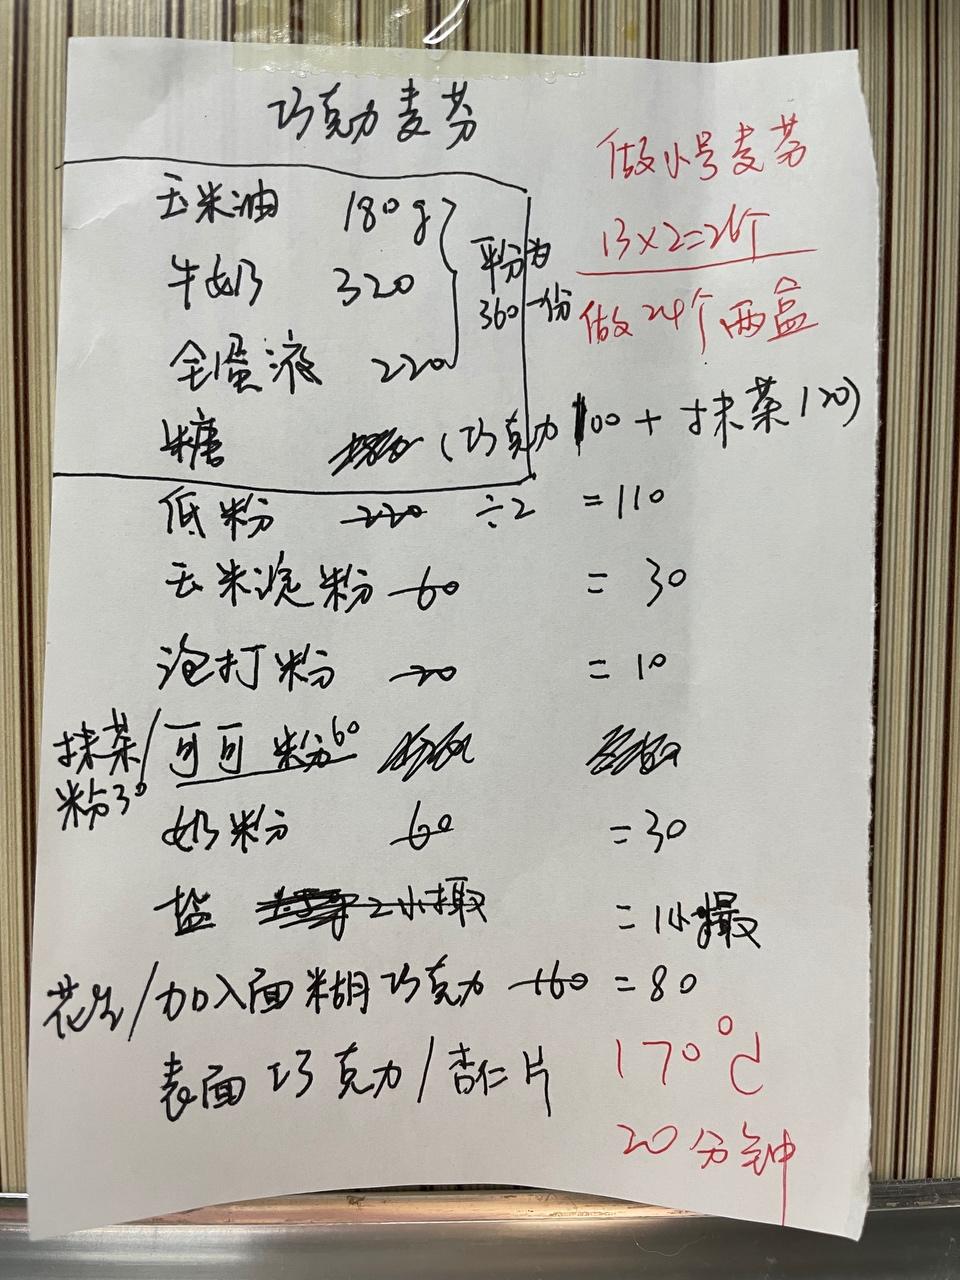 巧克力麦芬
做小号麦芬
13×2=26个
做24个两盒
玉米油 180g
牛奶 320
全蛋液 220
平分为
360一份
糖 (巧克力100+抹茶120)
低粉 220 ÷2 =110
玉米淀粉 60 =30
泡打粉 20 =10
抹茶/可可粉60
粉30
奶粉 60 =30
盐 2小撮 =1小撮
花生/加入面糊巧克力 160 =80
表面巧克力/杏仁片
170℃
20分钟